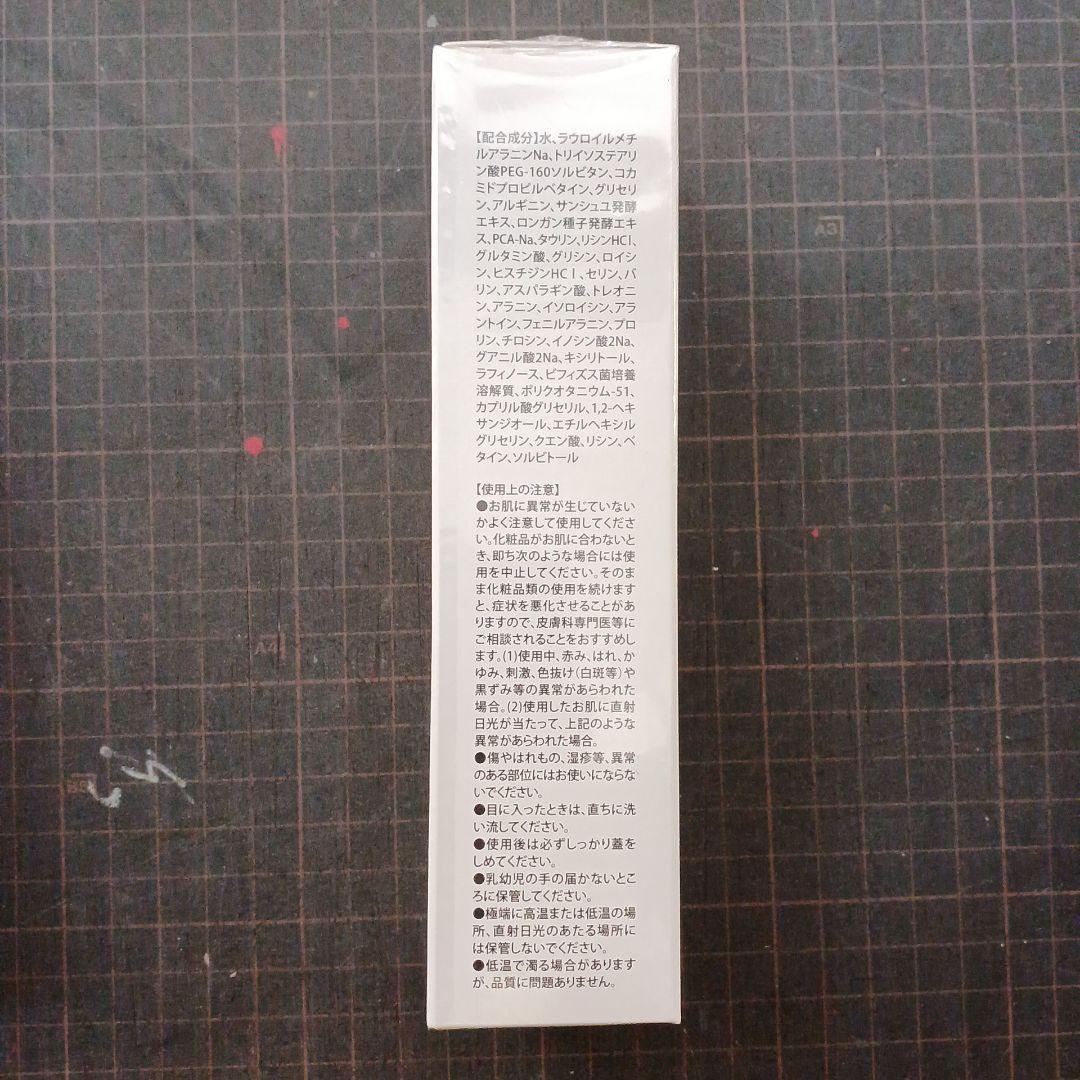 【配合成分】水、ラウロイルメチ
ルアラニンNa、トリイソステアリ
ン酸PEG-160ソルビタン、コカ
ミドプロピルベタイン、グリセリ
ン、アルギニン、サンシュユ発酵
エキス、ロンガン種子発酵エキ
ス、PCA-Na、タウリン、リシンHCl、
グルタミン酸、グリシン、ロイシ
ン、ヒスチジンHCl、セリン、バ
リン、アスパラギン酸、トレオニ
ン、アラニン、イソロイシン、アラ
ントイン、フェニルアラニン、プロ
リン、チロシン、イノシン酸2Na、
グアニル酸2Na、キシリトール、
ラフィノース、ビフィズス菌培養
溶解質、ポリクオタニウム-51、
カプリル酸グリセリル、1,2-ヘキ
サンジオール、エチルヘキシル
グリセリン、クエン酸、リシン、ベ
タイン、ソルビトール
【使用上の注意】
●お肌に異常が生じていない
かよく注意して使用してくださ
い。化粧品がお肌に合わないと
き、即ち次のような場合には使
用を中止してください。そのま
ま化粧品類の使用を続けます
と、症状を悪化させることがあ
りますので、皮膚科専門医等に
ご相談されることをおすすめし
ます。(1)使用中、赤み、はれ、か
ゆみ、刺激、色抜け(白斑等)や
黒ずみ等の異常があらわれた
場合。(2)使用したお肌に直射
日光が当たって、上記のような
異常があらわれた場合。
●傷やはれもの、湿疹等、異常
のある部位にはお使いにならな
いでください。
●目に入ったときは、直ちに洗
い流してください。
●使用後は必ずしっかり蓋を
しめてください。
●乳幼児の手の届かないとこ
ろに保管してください。
●極端に高温または低温の場
所、直射日光のあたる場所に
は保管しないでください。
●低温で濁る場合があります
が、品質に問題ありません。
A3
A4